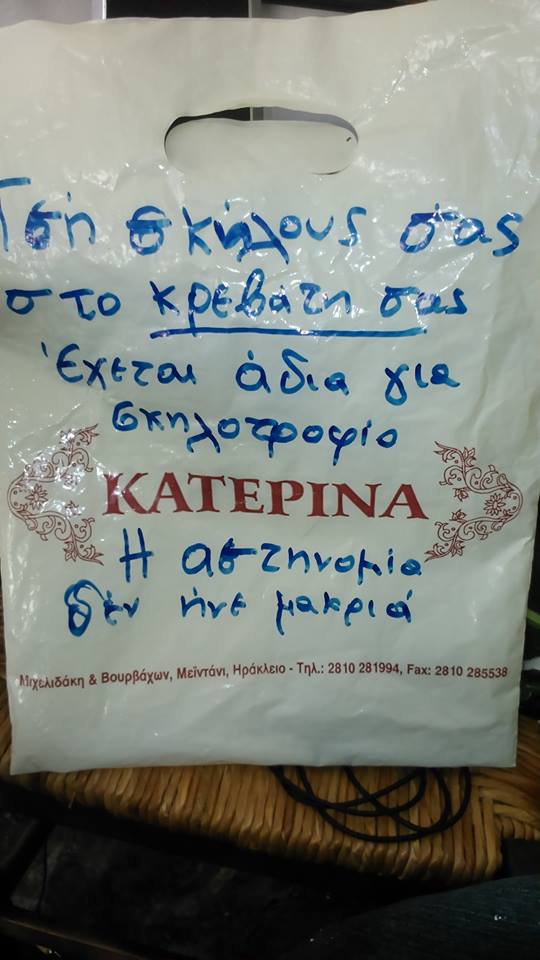 Τσή σκήλους σας
στο κρεβάτη σας
Έχεται άδια για
σκηλοτροφίο
ΚΑΤΕΡΙΝΑ
Η αστηνομία
δέν ήνε μακριά
Μιχελιδάκη & Βουρβάχων, Μεϊντάνι, Ηράκλειο - Τηλ.: 2810 281994, Fax: 2810 285538